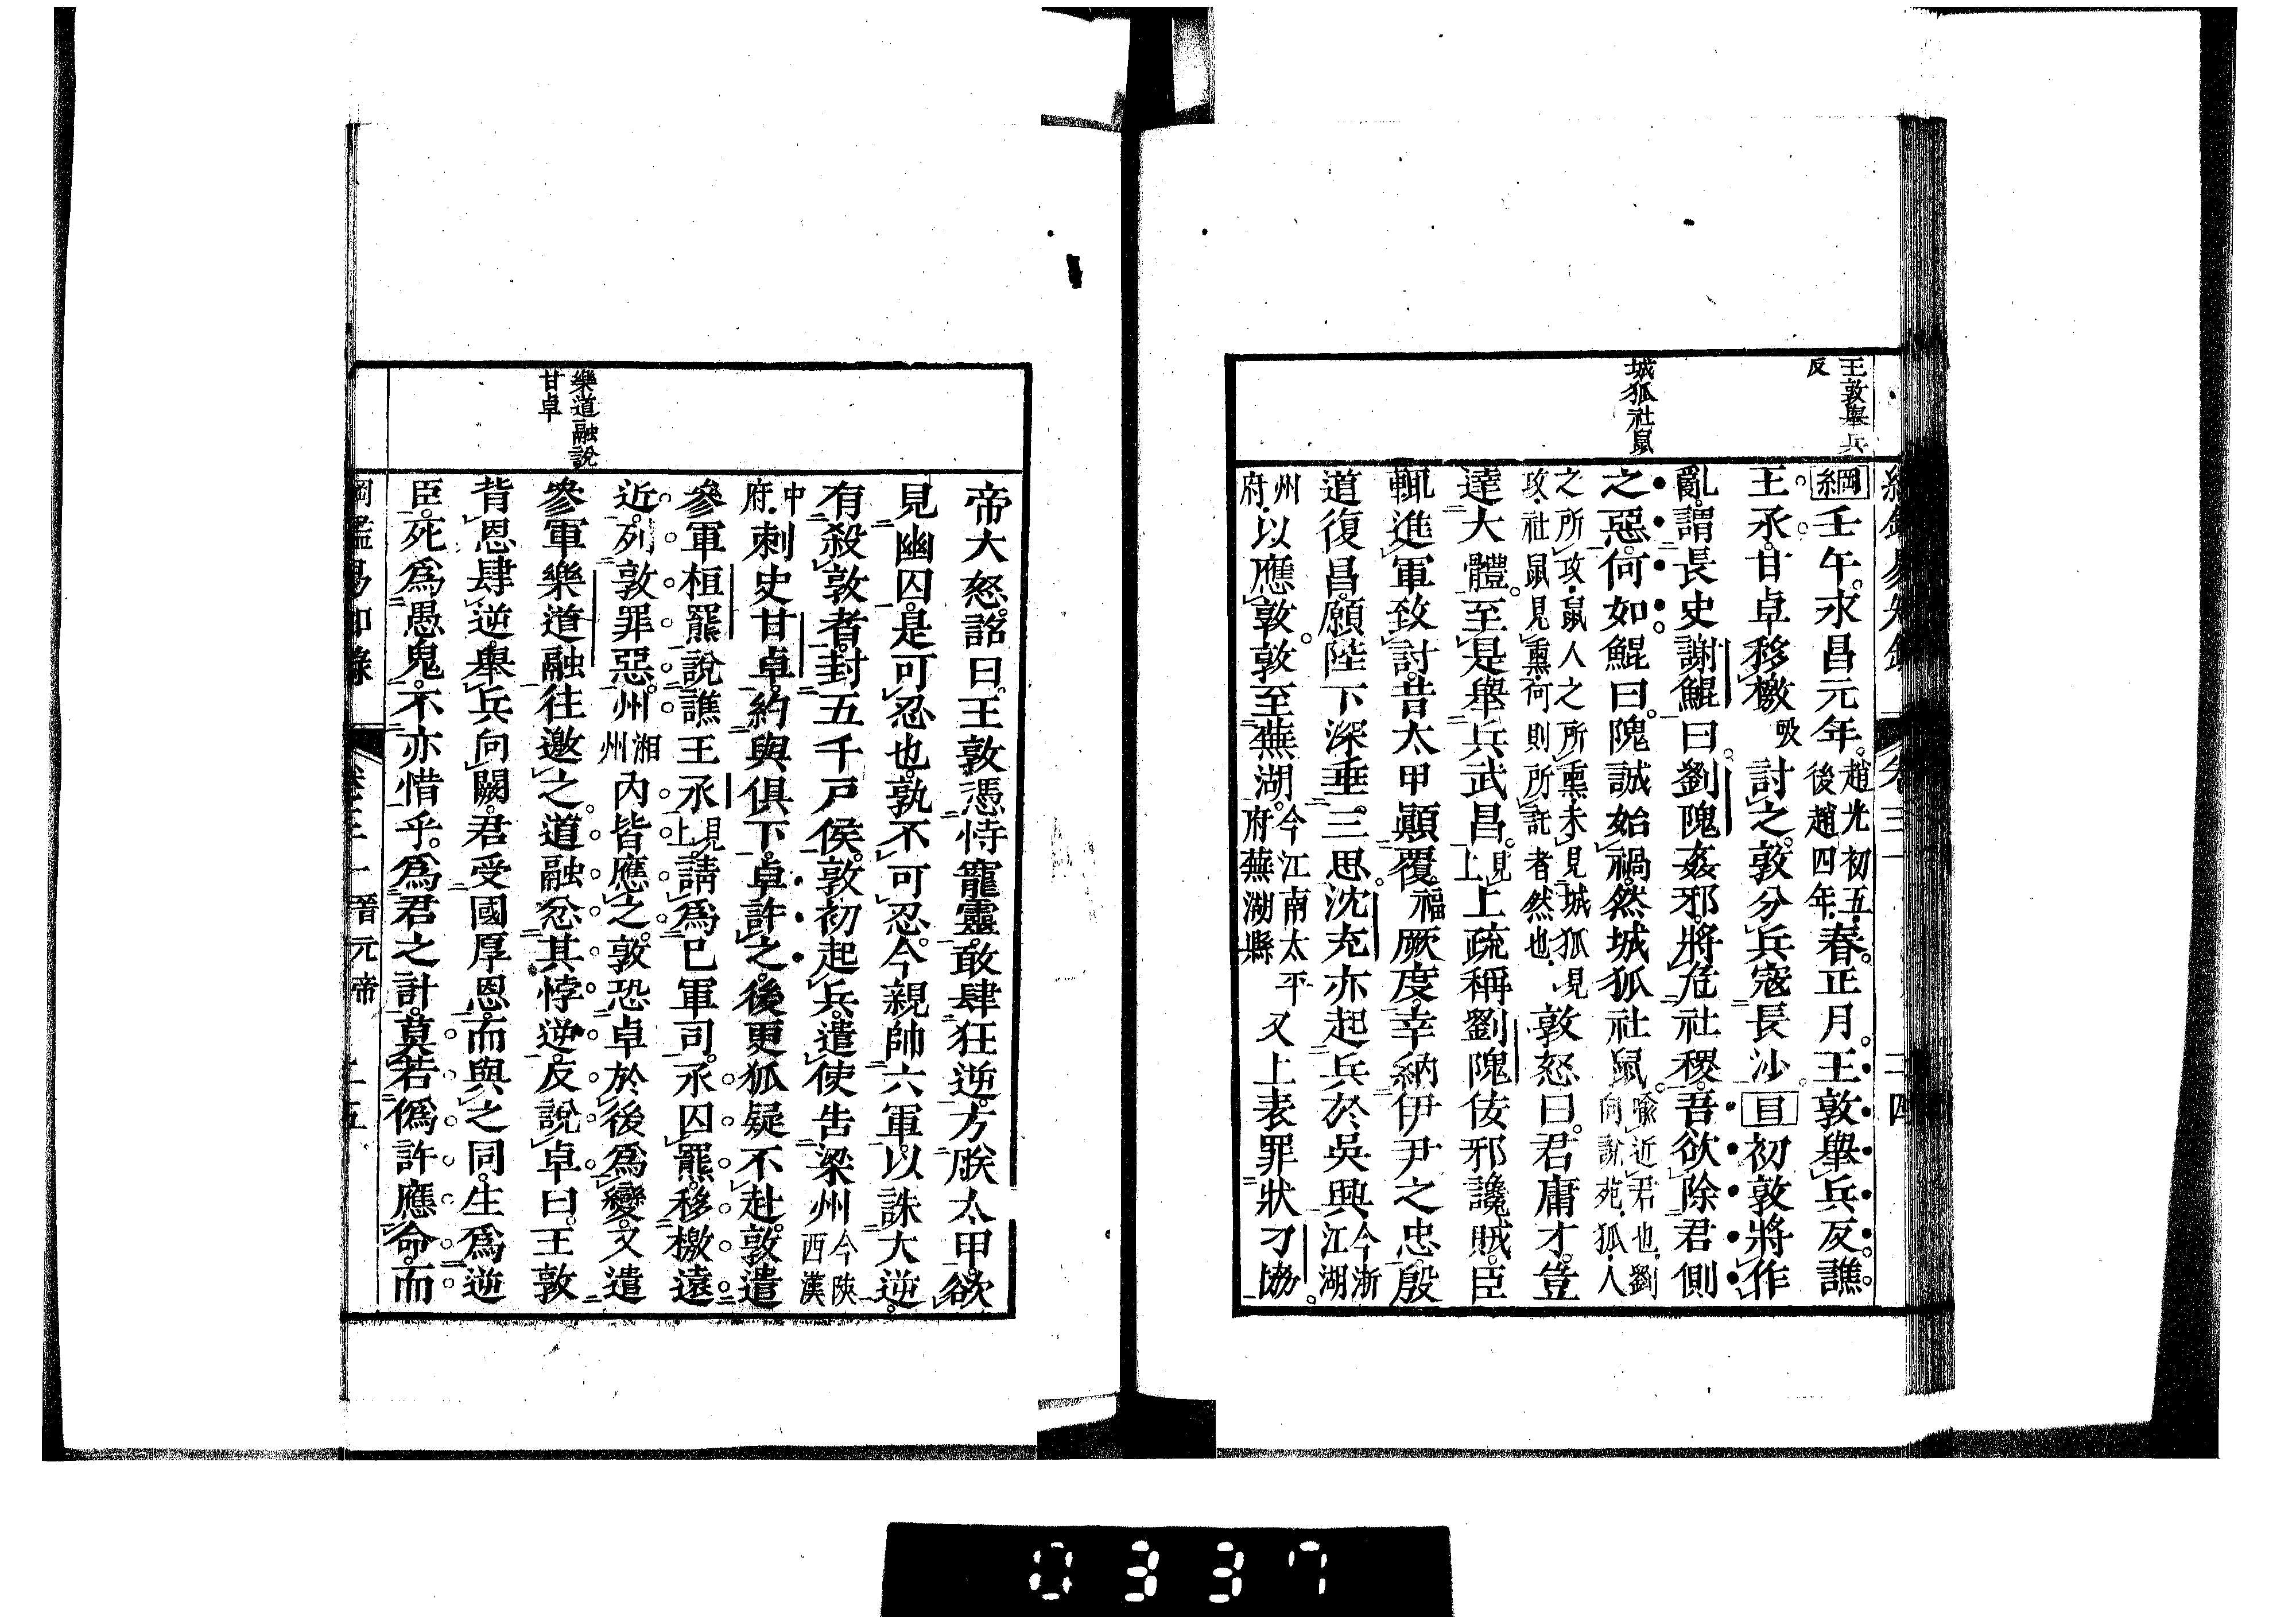 王敦舉兵
反
城狐社鼠
綱壬午。永昌元年。趙光初五後趙四年。春。正月。王敦舉兵反。譙
王氶。甘卓移檄吸討之。敦分兵寇長沙。目初敦將作
亂。謂長史謝鯤曰。劉隗姦邪。將危社稷。吾欲除君側
之惡。何如。鯤曰。隗誠始禍。然城狐社鼠。喻近君也。劉向說苑。狐。人
之所攻。鼠人之所熏。未見城狐見攻。社鼠見熏。何則所託者然也。敦怒曰。君庸才。豈
達大體。至是舉兵武昌。見上上疏稱劉隗佞邪讒賊。臣
輒進軍致討。昔太甲顚覆。福厥度。幸納伊尹之忠。殷
道復昌。願陛下深垂三思。沈充亦起兵於吳興今浙江湖
州府。以應敦。敦至蕪湖。今江南太平府蕪湖縣又上表罪狀刁協。
二四
樂道融說
甘卓
帝大怒。詔曰。王敦憑恃寵靈。敢肆狂逆。方朕太甲。欲
見幽囚。是可忍也。孰不可忍。今親帥六軍。以誅大逆。
有殺敦者。封五千戸侯。敦初起兵。遣使告梁州今陝西漢
中府。刺史甘卓。約與俱下。卓許之。後更狐疑不赴。敦遣
參軍桓羆說譙王氶見上。請爲已軍司。氶囚羆。移檄遠
近。列敦罪惡。州湘州內皆應之。敦恐卓於後爲變。又遣
參軍樂道融往邀之。道融忿其悖逆。反說卓曰。王敦
背恩肆逆。舉兵向闕。君受國厚恩。而與之同。生爲逆
臣。死爲愚鬼。不亦惜乎。爲君之計。莫若僞許應命。而
晉元帝